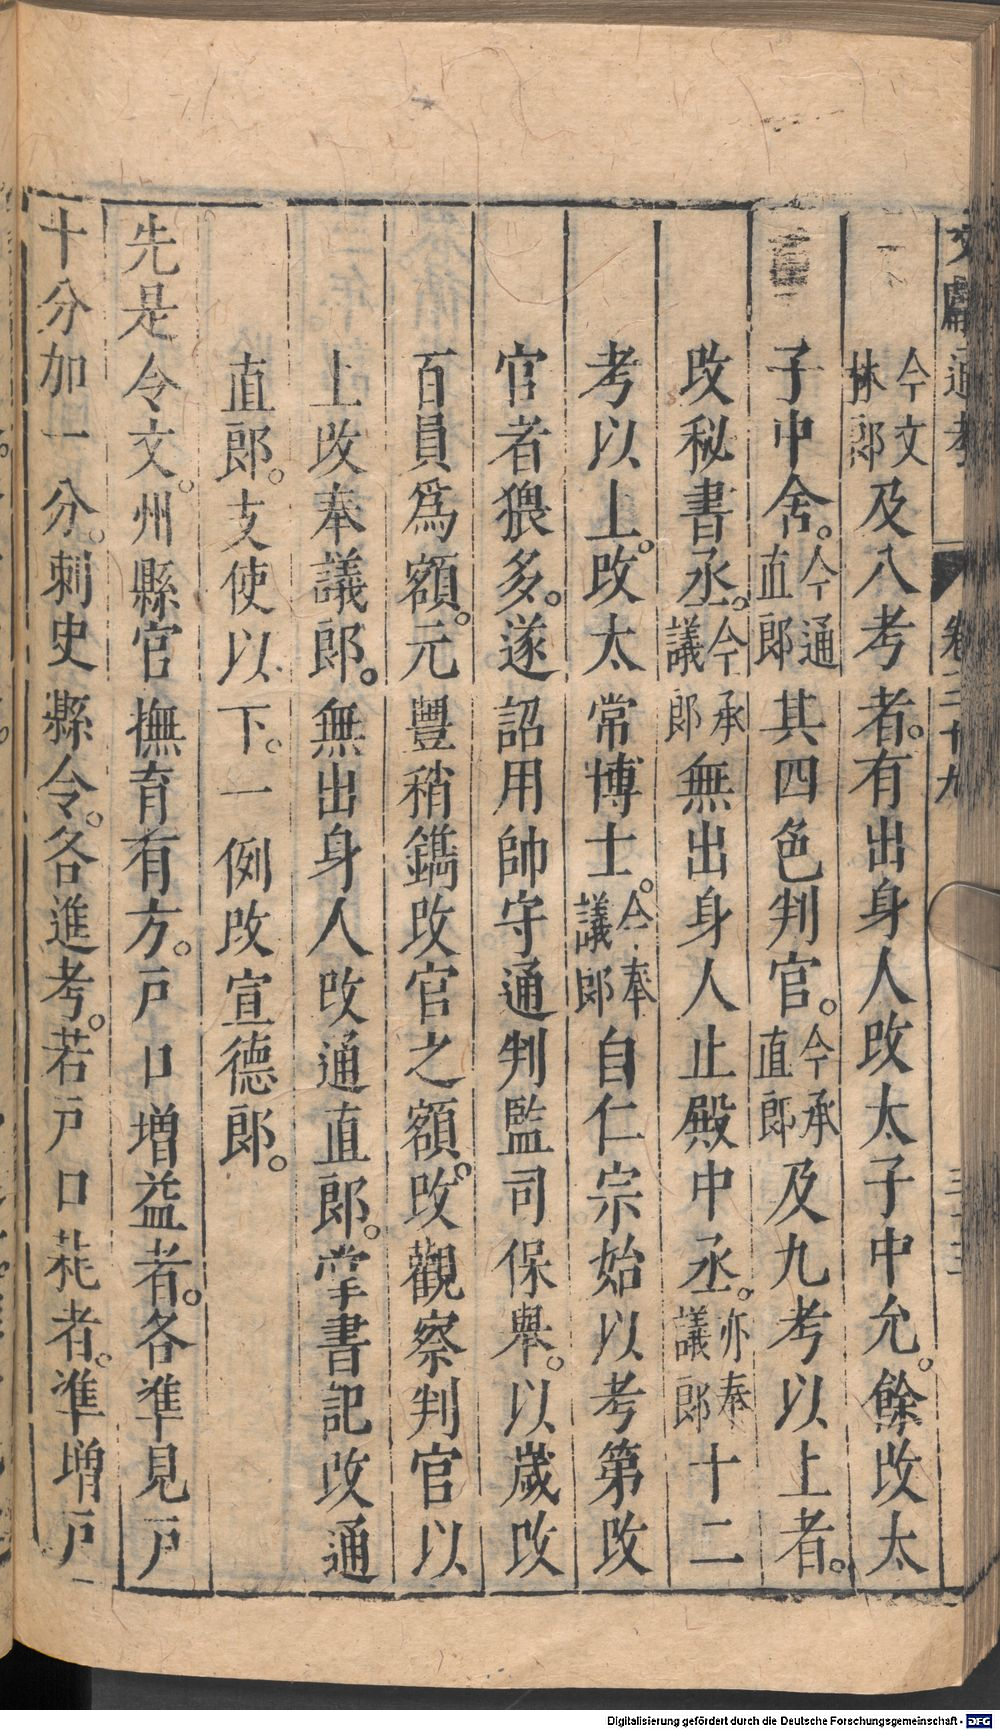 文獻通考 卷三十九
今文林郎及八考者。有出身人改太子中允。餘改太
子中舍。今通直郎其四色判官。今承直郎及九考以上者。
改秘書丞。今承議郎無出身人止殿中丞。亦奉議郎十二
考以上。改太常博士。今奉議郎自仁宗始以考第改
官者猥多。遂詔用帥守通判監司保舉。以歲改
百員爲額。元豐稍鐫改官之額。改觀察判官以
上改奉議郎。無出身人改通直郎。掌書記改通
直郎。支使以下。一例改宣德郎。
先是令文。州縣官撫育有方。戶口增益者。各準見戶
十分加一分。刺史縣令。各進考。若戶口耗者。準增戶
Digitalisierung gefördert durch die Deutsche Forschungsgemeinschaft - DFG